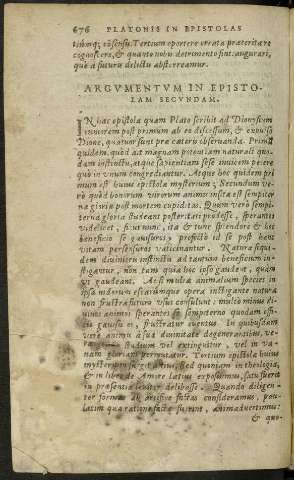 676 PLATONIS IN EPISTOLAS
tibusq; cōsensu. Tertium oportere errata præterita re
cognoscere, & quanto nobis detrimento sint, augurari,
quò à futuro delictu absterreamur.
ARGVMENTVM IN EPISTO-
LAM SECVNDAM.
IN hac epistola quam Plato scribit ad Dionysium
iuniorem post primum ab eo discessum, & expulso
Dione, quatuor sunt præ cæteris observanda. Primū
quidem, quòd ait magnam potentiam naturali quo-
dam instinctu, atque sapientiam sese invicem petere
quò in unum congrediantur. Atque hoc quidem pri
mum est huius epistolæ mysterium. Secundum ve-
rò quòd bonorum virorum animis insita est sempiter
næ gloriæ post mortem cupiditas. Quum verò sempi-
terna gloria studeant posteritati prodesse, sperantes
videlicet, si fuerint, ita & tunc splendore & hoc
beneficio se gausuros, profectò id se post hanc
vitam persensuros vaticinantur. Natura siqui-
dem divino instinctu ad tantum beneficium in-
stigantur, non tam quia hoc ipso gaudeant, quàm
ut gaudeant. Ac si multa animalium species in
ipsa modorum efficiendorum opera instigante natura
non frustra futuro usui consulunt: multò minus di-
vini animi sperantes se sempiterno quodam offi-
cio gausuros, frustrantur eventus. In quibusdam
verò animis à sua divinitate degenerantibus, ve-
studium vel extinguitur, vel in va-
nam gloriam permutatur. Tertium epistolæ huius
mysterium Sed quoniam in theologia,
& in libro de Amore latius exposuimus, satis fuerit
in præsentia leviter delibasse. Quando diligen-
ter formas ab artifice factas consideramus, pau-
latim qua ratione factæ fuerint, animadvertimus:
& quo-